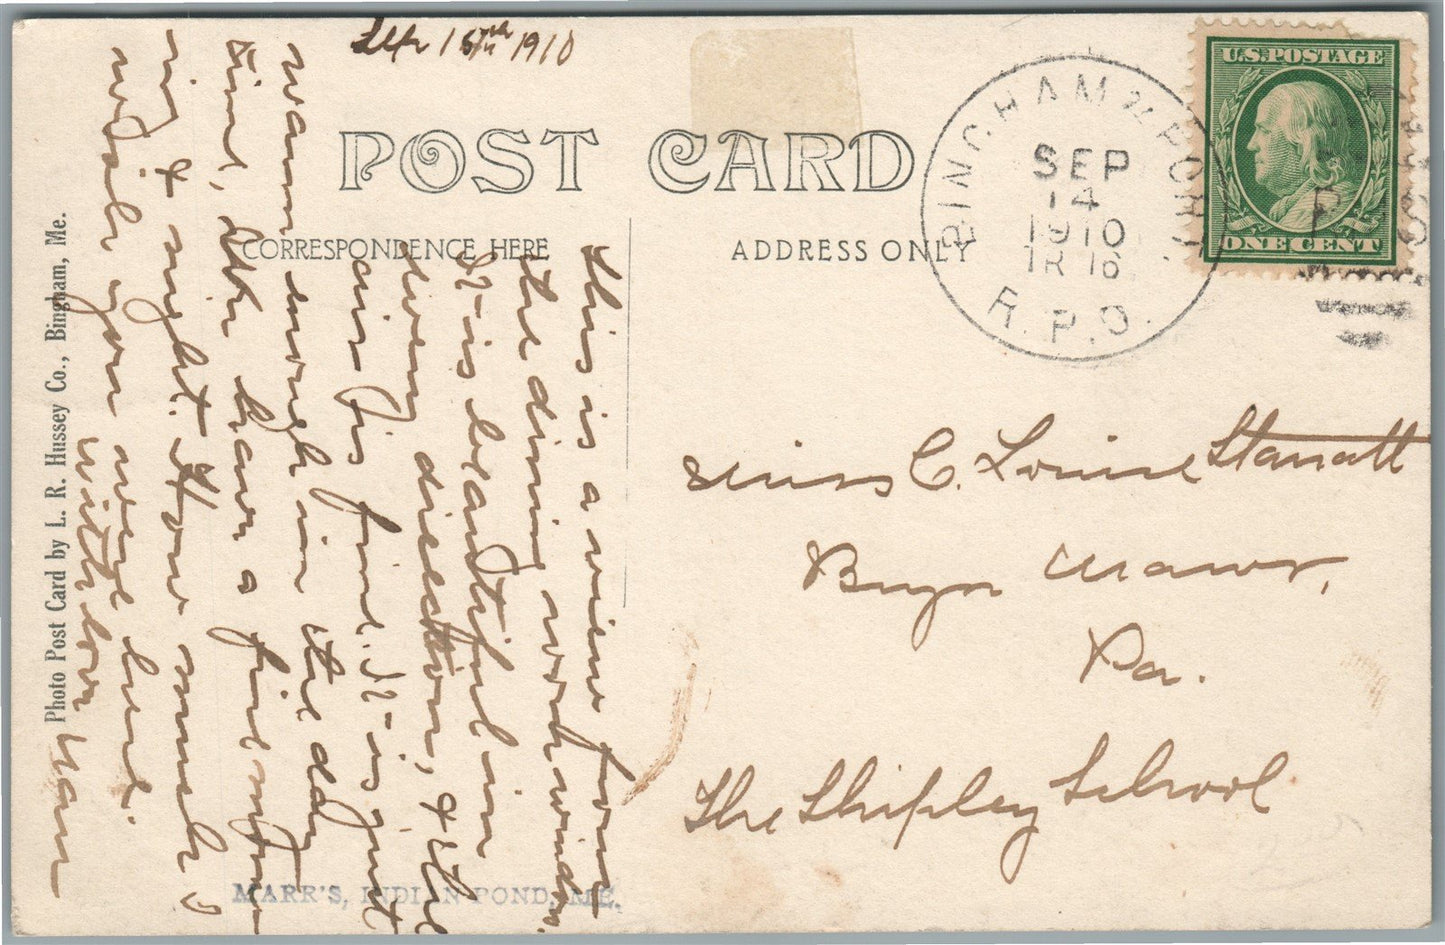 Sep 15th 1910
POST CARD
CORRESPONDENCE HERE
ADDRESS ONLY
BINGHAM & PORT.
SEP
14
1910
TR 16
R.P.O.
U.S. POSTAGE
ONE CENT
this is a view from
the dining room windows.
It is beautiful in
every direction, & the
air is fine. It is just
warm enough in the day
time, & we have a fire morn-
ing & night. How much I
wish you were here.
With love
Nan
Miss C. Louise Stanatt
Bryn Mawr,
Pa.
The Shipley School
Photo Post Card by L. R. Hussey Co., Bingham, Me.
MARR'S, INDIAN POND, ME.